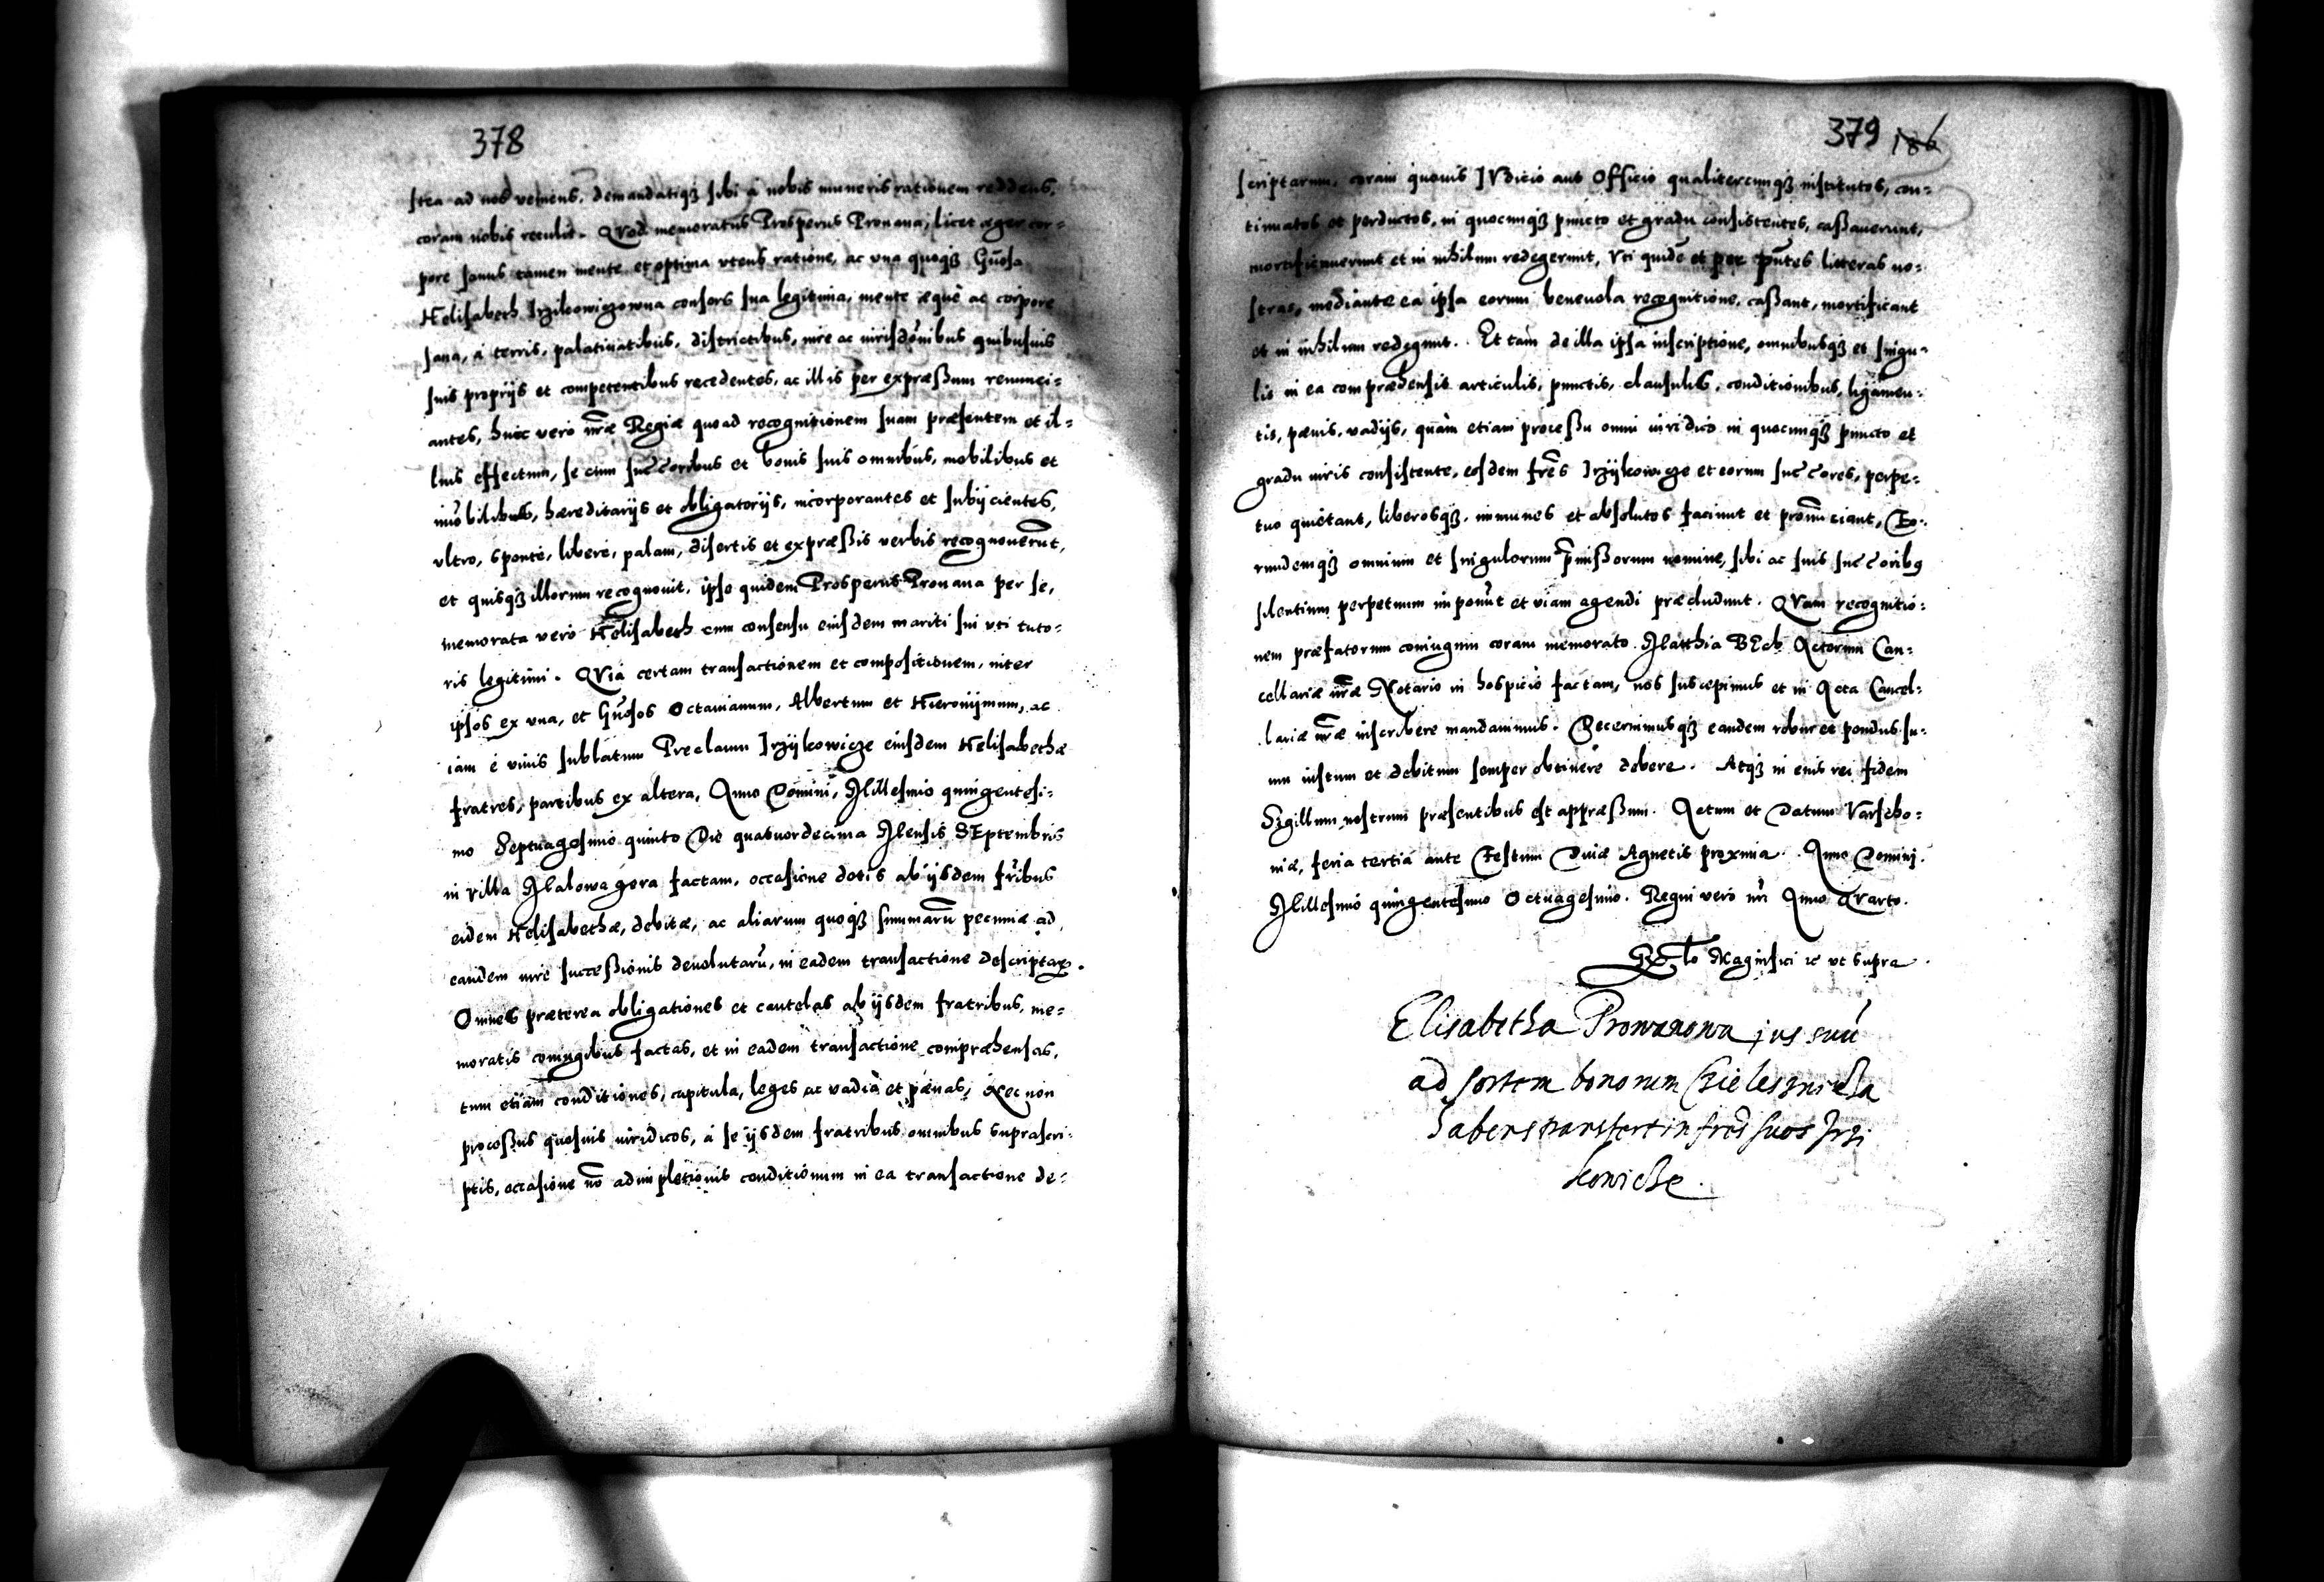 378
stea ad nos veniens, demandatiq3 sibi à nobis muneris rationem reddens,
coram nobis retulit. QVod memoratus Prosperus Prouana, licet æger cor=
pore sanus tamen mente et optima vtens ratione, ac vna quoq3 Gn̄osa
Helisabeth Irzikowiczowna consors sua legitima, mente æquè ac corpore
sana, à terris, palatinatibus, districtibus, iure ac iurisdōnibus quibusuis
suis proprijs et competentibus recedentes, ac illis per expræßum renunci=
antes, huic vero nr̄æ Regiæ quoad recognitionem suam præsentem et il=
lius effectum, se cum succ̄oribus et bonis suis omnibus, mobilibus et
im̄obilibus, hæreditarijs et obligatorijs, incorporantes et subijcientes,
vltro, sponte, libere, palam, disertis et expræßis verbis recognouerūt,
et quisq3 illorum recognouit, ipse quidem Prosperus Prouana per se,
memorata vero Helisabeth cum consensu eiusdem mariti sui vti tuto=
ris legitimi. QVia certam transactionem et compositionem, inter
ipsos ex vna, et Gn̄osos Octauianum, Albertum et Hieronijmum, ac
iam è viuis sublatum Preclaum Irzijkowicze eiusdem Helisabethæ
fratres, partibus ex altera, Anno Domini, Millesimo quingentesi=
mo Septuagesimo quinto Die quatuordecima Mensis SEptembris
in villa Malowa gora factam, occasione dotis ab ijsdem fr̄ibus
eidem Helisabethæ, debitæ, ac aliarum quoq3 summarū pecuniæ ad
eandem iure succeßionis deuolutarū, in eadem transactione descriptaꝝ.
Omnes præterea obligationes et cautelas ab ijsdem fratribus, me=
moratis coniugibus factas, et in eadem transactione compræhensas,
tum etiam conditiones, capitula, leges ac vadia et pænas, Nec non
proceßus quosuis iuridicos, à se ijsdem fratribus omnibus suprascri=
ptis, occasione nō adimpletionis conditionum in ea transactione de=
379 186
scriptarum, coram quouis IVdicio aut Officio qualitercunq3 institutos, con=
tinuatos et perductos, in quocunq3 puncto et gradu consistentes, caßauerunt,
mortificauerunt et in nihilum redegerunt, Vti quidē et per pn̄tes litteras no=
stras, mediante ea ipsa eorum beneuola recognitione, caßant, mortificant
et in nihilum redegunt. Et tam de illa ipsa inscriptione, omnibusq3 et singu=
lis in ea compræhensis articulis, punctis, clausulis, conditionibus, ligamen=
tis, pænis, vadijs, quàm etiam proceßu omni iuridico in quocunq3 puncto et
gradu iuris consistente, eosdem frēs Irzijkowicze et eorum succ̄ores, perpe=
tuo quietant, liberosq3, immunes et absolutos faciunt et pronūciant, Eo=
rundemq3 omnium et singulorum p̄mißorum nomine, sibi ac suis succ̄orib9
silentium perpetuum imponūt et viam agendi præcludunt. QVam recognitio=
nem præfatorum coniugum coram memorato Matthia BEck Actorum Can=
cellariæ nr̄æ Notario in hospicio factam, nos suscepimus et in Acta Cancel=
lariæ nr̄æ inscribere mandauimus. Decernimusq3 eandem robur et pondus su=
um iustum et debitum semper obtinere debere. Atq3 in eius rei fidem
Sigillum nostrum præsentibus est appræßum. Actum et Datum Varscho=
uiæ, feria tertia ante Festum Diuæ Agnetis proxima. Anno Domini.
Millesimo quingentesimo Octuagesimo. Regni vero nr̄i Anno QVarto.
Rl̄to Magnifici &c vt supra.
Elisabetha Prowanowa jus suū
ad sortem bonorum
habens transfert in frēs suos Irzi
kowicze.